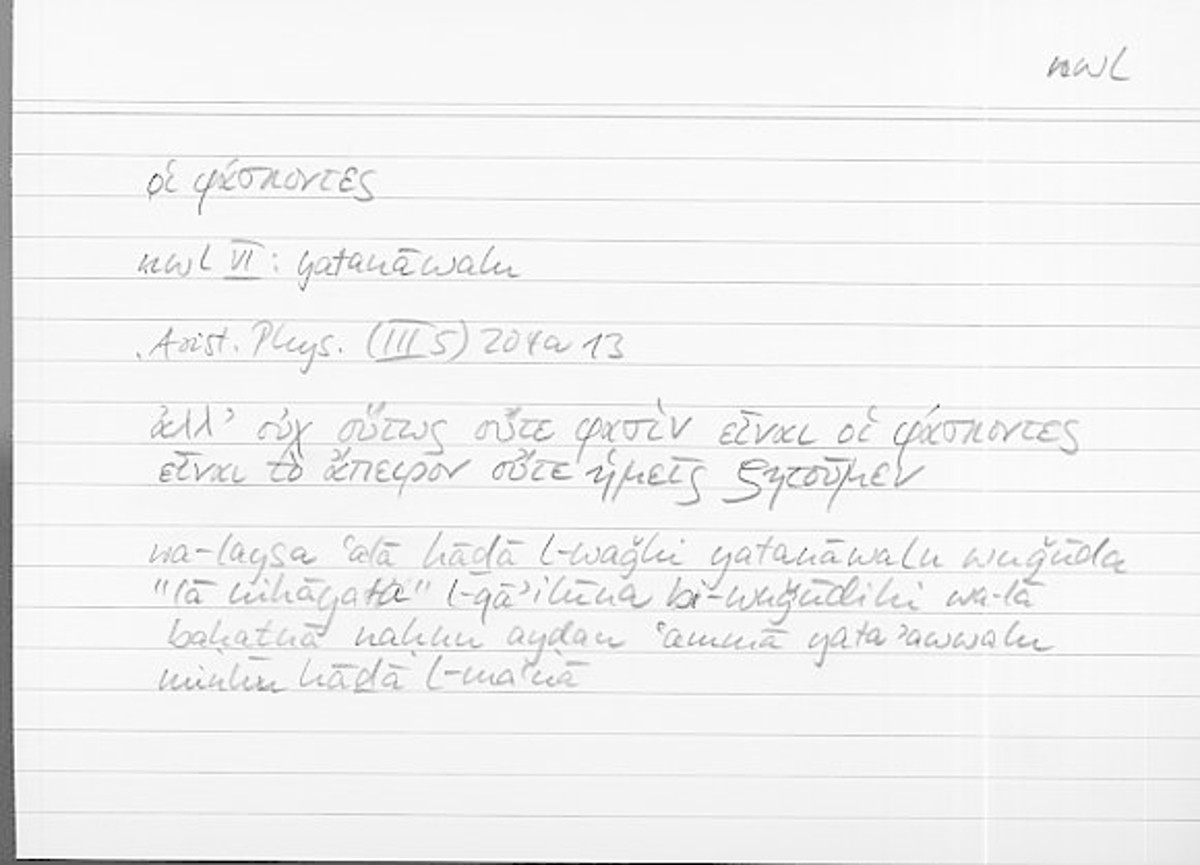 nwl
οἱ φάσκοντες
nwl VI: yatanāwalu
Arist. Phys. (III 5) 204a 13
ἀλλ' οὐχ οὕτως οὔτε φασὶν εἶναι οἱ φάσκοντες
εἶναι τὸ ἄπειρον οὔτε ἡμεῖς ζητοῦμεν
wa-laysa ʿalā hāḏā l-waǧhi yatanāwalu wuǧūda
"lā nihāyata" l-qāʾilūna bi-wuǧūdihi wa-lā
baḥaṯnā naḥnu ayḍan ʿammā yataʾawwalu
minhu hāḏā l-maʿnā